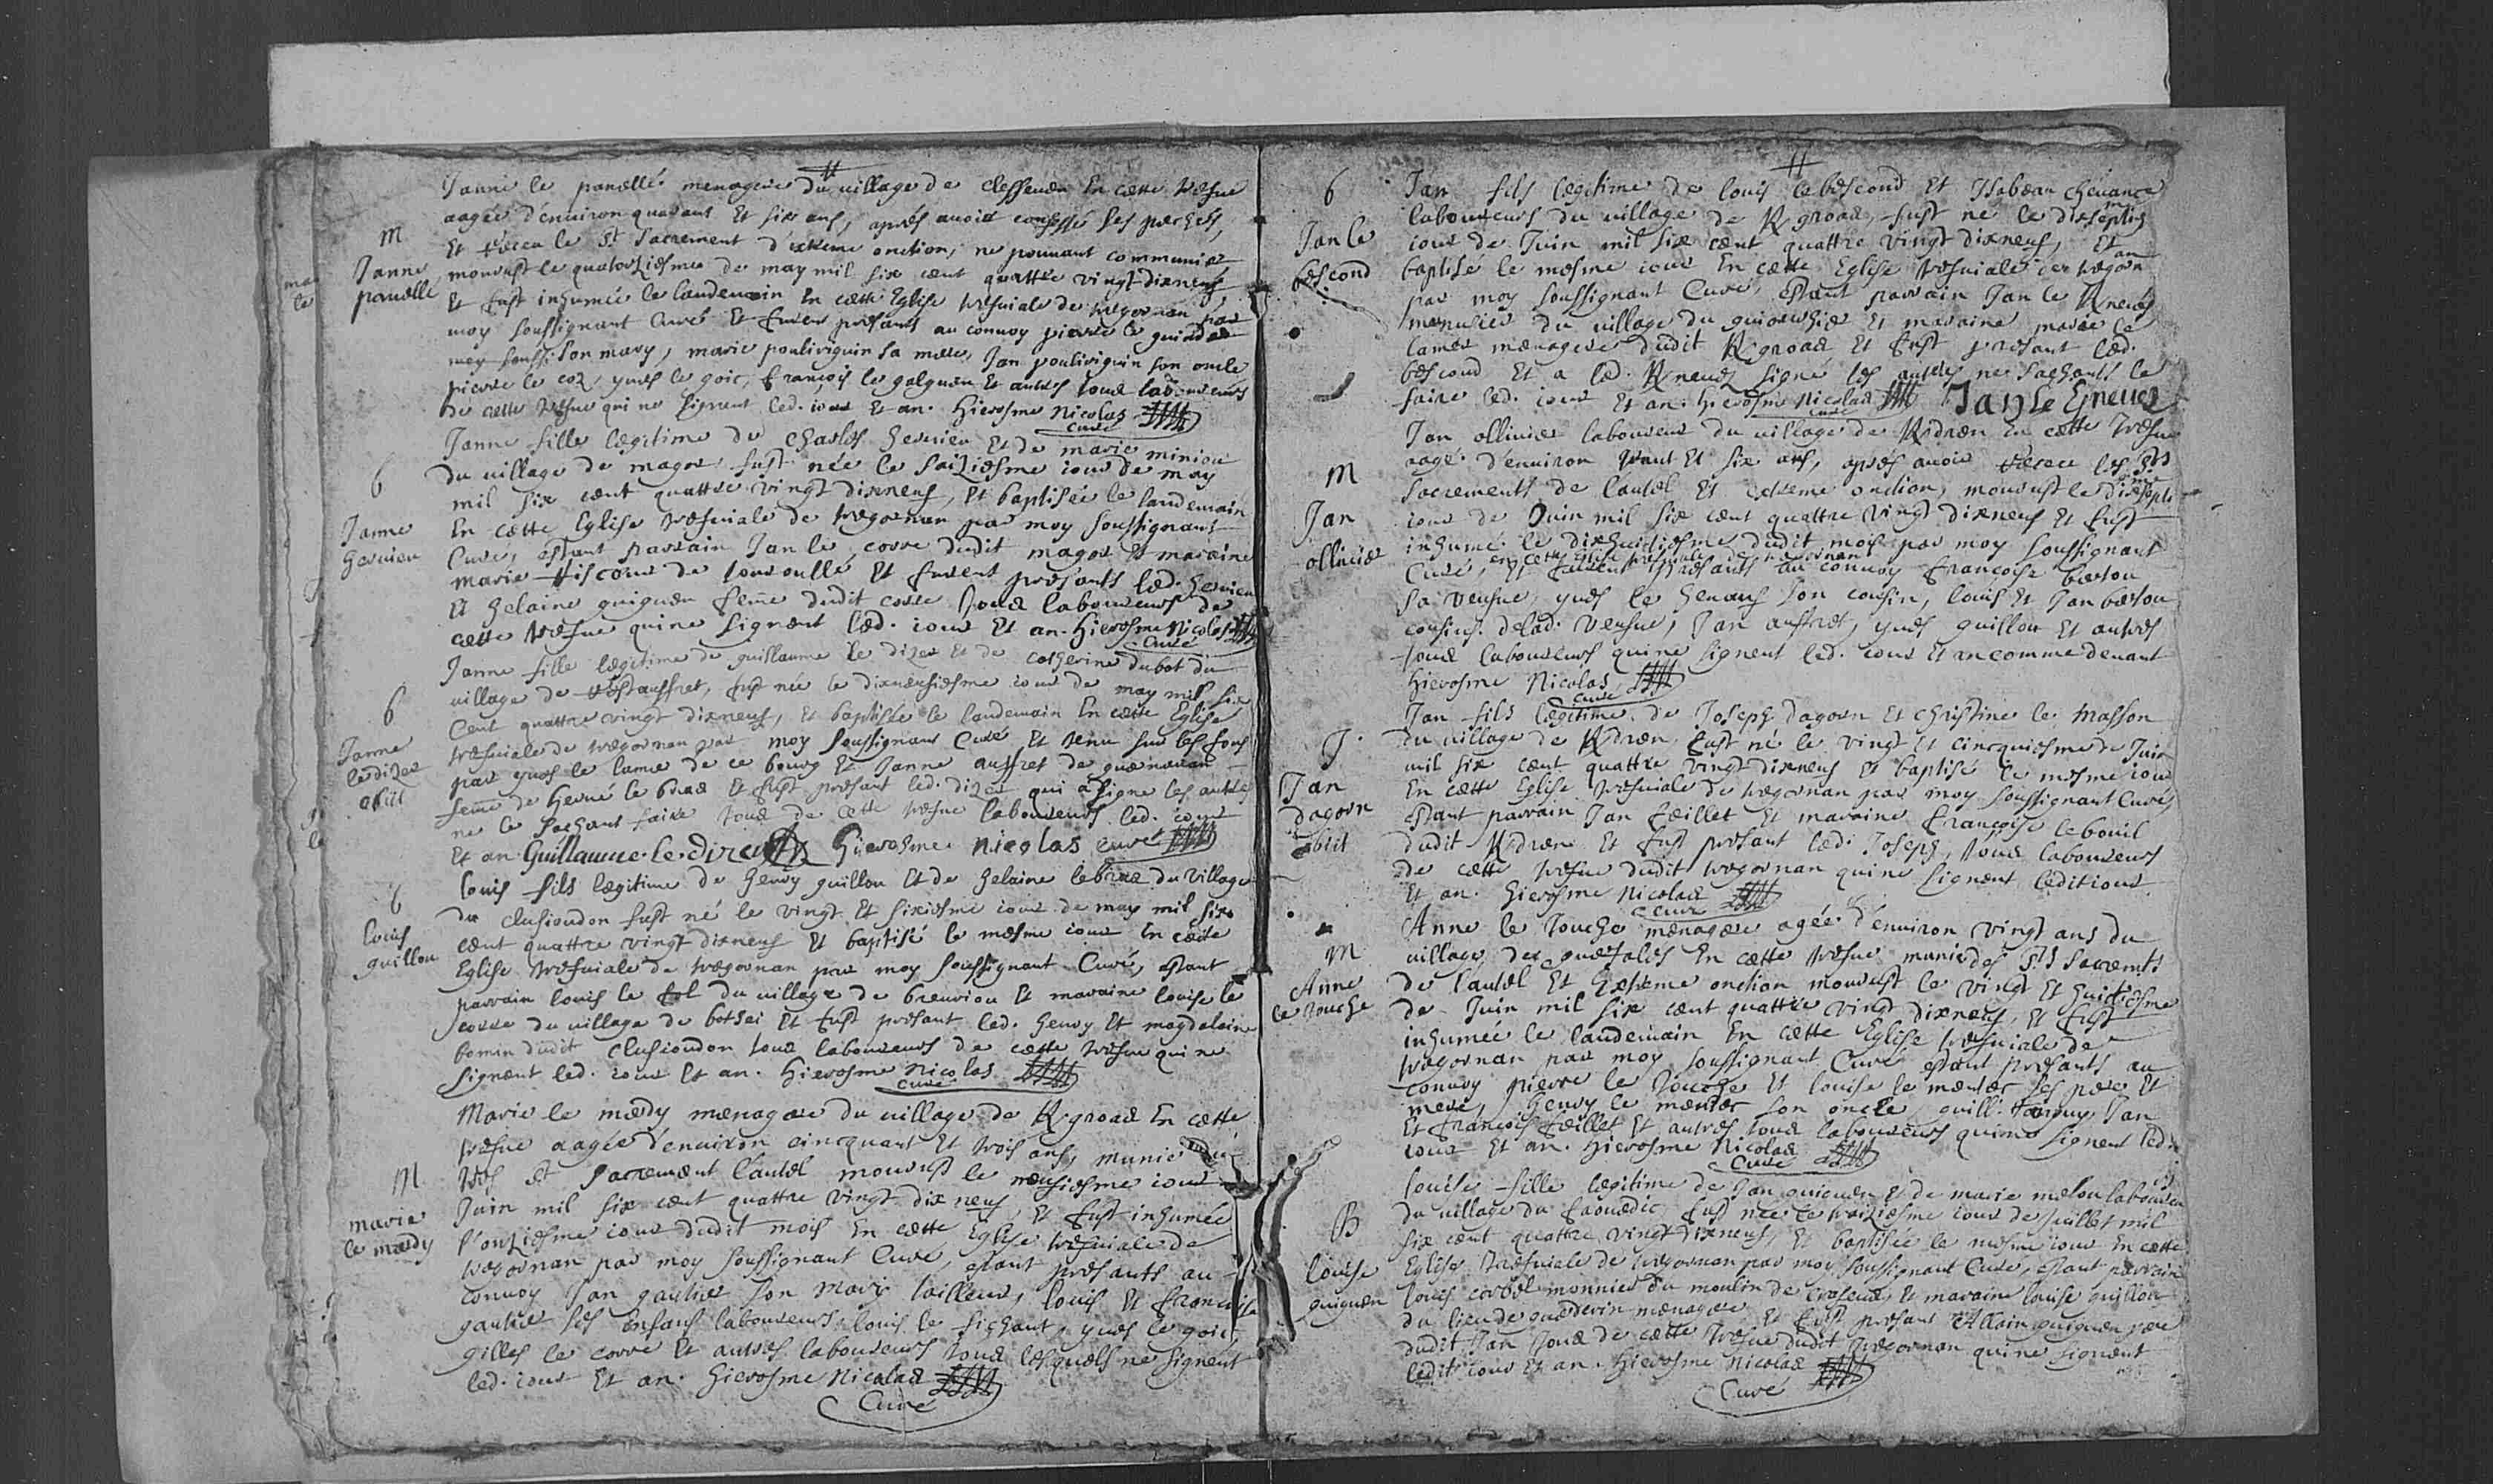 Janne le panelle menagere du village de clessenen En cette trefue
aagée d'enuiron quarant Et six ans, aprés auoir confessé ses pechés,
m
Et receu le St. Sacrement d'extreme onction, ne pouuant communier
Janne
panelle
mourust le quatorziesme de may mil six cent quattre vingt dixneuf
Et fust inhumée le landemain En cette Eglise trefuiale de tregornan par
moy soussignant Curé Et furent presants au conuoy pierre le guinder
son mary, marie pouliriguin sa mere, Jan pouliriguin son oncle
pierre le coz, yues le goic, françois le galguen Et autres tous laboureurs
de cette trefue qui ne signent led. iour Et an. Hierosme Nicolas
Curé
Janne fille legitime de charles Heruieu Et de marie miniou
6
du village de magor fust née le saiziesme iour de may
mil six cent quattre vingt dixneuf, Et baptisée le landemain
Janne
Heruieu
En cette Eglise trefuiale de tregornan par moy soussignant
Curé, estant parrain Jan le corre dudit magor Et maraine
marie Et furent presants led. Heruieu
Et Helaine guiguen feme dudit corre tous laboureurs de
cette trefue qui ne signent led. iour Et an. Hierosme Nicolas
Curé
Janne fille legitime de guillaume le dizer Et de catherine dubot du
6
village de restauffret, fust née le dixneufiesme iour de may mil six
Cent quattre vingt dixneuf, Et baptisée le landemain En cette Eglise
Janne
le dizer
obiit
trefuiale de tregornan par moy soussignant Curé Et tenu sur les fons
par yues le lamer de ce bourg Et Janne auffret de
feme de Herué le bras Et fust presant led. dizer qui a signe les autres
ne le sachant faire tous de cette trefue laboureurs led. iour
Et an. Guillaume le dizer Hierosme Nicolas curé
6
louis fils legitime de Henry guillou Et de Helaine le bras du village
louis
guillou
du clusioudon fust né le vingt Et sixiesme iour de may mil six
cent quattre vingt dixneuf Et baptisé le mesme iour En cette
Eglise trefuiale de tregornan par moy soussignant Curé, estant
parrain louis le du village de breuriou Et maraine louise le
corre du village de botsei Et fust presant led. Henry Et magdelaine
bomin dudit clusioudon tous laboureurs de cette trefue qui ne
signent led. iour Et an. Hierosme Nicolas
Curé
Marie le medy menagere du village de Kgroas En cette
trefue aagée d'enuiron cincquant Et trois ans, munie du
M
tres St Sacrement l'autel mourust le neufiesme iour
marie
le medy
Juin mil six cent quattre vingt dix neuf, Et fust inhumée
l'onziesme iour dudit mois En cette Eglise trefuiale de
tregornan par moy soussignant Curé, estant presants au
conuoy Jan gautier son mary tailleur, louis Et françoise
gautier ses Enfans laboureurs, louis le fichant, yues le goic,
gilles le corre Et autres laboureurs tous lesquels ne signent
led. iour Et an. Hierosme Nicolas
Curé
6
Jan le
bescond
Jan fils legitime de louis le bescond Et Isabeau cheuance
laboureurs du village de Kgroas, fust né le dixseptiesme
iour de Juin mil six cent quattre vingt dixneuf, Et
baptisé le mesme iour En cette Eglise trefuiale de tregornan
par moy soussignant Curé, estant parrain Jan le Kneuez
menusier du village du Et maraine marie le
lamer menagere dudit Kgroas Et fust presant led.
bescond Et a led. Kneuez signé les autres ne sachants le
faire led. iour Et an. Hierosme Nicolas Jan le Gneuez
Curé
Jan olliuier laboureur du village de Kdren En cette trefue
m
aagé d'enuiron trant Et six ans, aprés auoir receu les Sts
Sacrements de l'autel Et extreme onction, mourust le dixseptiesme
Jan
olliuier
iour de Juin mil six cent quattre vingt dixneuf Et fust
inhumé le dixhuictiesme dudit mois par moy soussignant
Curé, en cette Eglise trefuiale de tregornan Et furent presants au conuoy françoise berlou
sa veufue, yues le Henanf son cousin, louis Et Jan berlou
cousins delad. veufue, Jan auffret, yues guillou Et autres
tous laboureurs qui ne signent led. iour Et an comme deuant
Hierosme Nicolas
Curé
Jan fils legitime de Joseph dagorn Et christine le masson
du village de Kdren fust né le vingt Et cincquiesme de Juin
Jan
dagorn
obiit
mil six cent quattre vingt dixneuf Et baptisé le mesme iour
En cette Eglise trefuiale de tregornan par moy soussignant Curé,
Estant parrain Jan feillet Et maraine françoise le bouil
dudit Kdren Et fust presant led. Joseph, tous laboureurs
de cette trefue dudit tregornan qui ne signent ledit iour
Et an. Hierosme Nicolas
Curé
Anne le touche menagere agée d'enuiron vingt ans du
M
village de En cette trefue munie des Sts Sacremts
Anne
le touche
de l'autel Et Extreme onction mourust le vingt Et huictiesme
de Juin mil six cent quattre vingt dixneuf, Et fust
inhumée le landemain En cette Eglise trefuiale de
tregornan par moy soussignant Curé estant presants au
conuoy pierre le touche Et louise le menter ses pere Et
mere, Henry le menter son oncle, guill. tanguy, Jan
Et françois feillet Et autres tous laboureurs qui ne signent led.
iour Et an. Hierosme Nicolas
Curé
louise fille legitime de Jan guiguen Et de marie melou laboureurs
B
du village du faouedic fust née le traiziesme iour de Juillet mil
six cent quattre vingt dixneuf, Et baptisée le mesme iour En cette
louise
guiguen
Eglise trefuiale de tregornan par moy soussignant Curé, estant parrain
louis corbel monnier du moulin de Et maraine louise guillou
du lieu de quederin menagere Et fust presant Allain guiguen pere
dudit Jan tous de cette trefue dudit tregornan qui ne signent
ledit iour Et an. Hierosme Nicolas
Curé